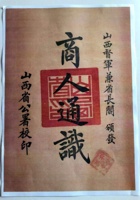 山西督軍兼省長閻 頒發
商人通識
山西省公署校印